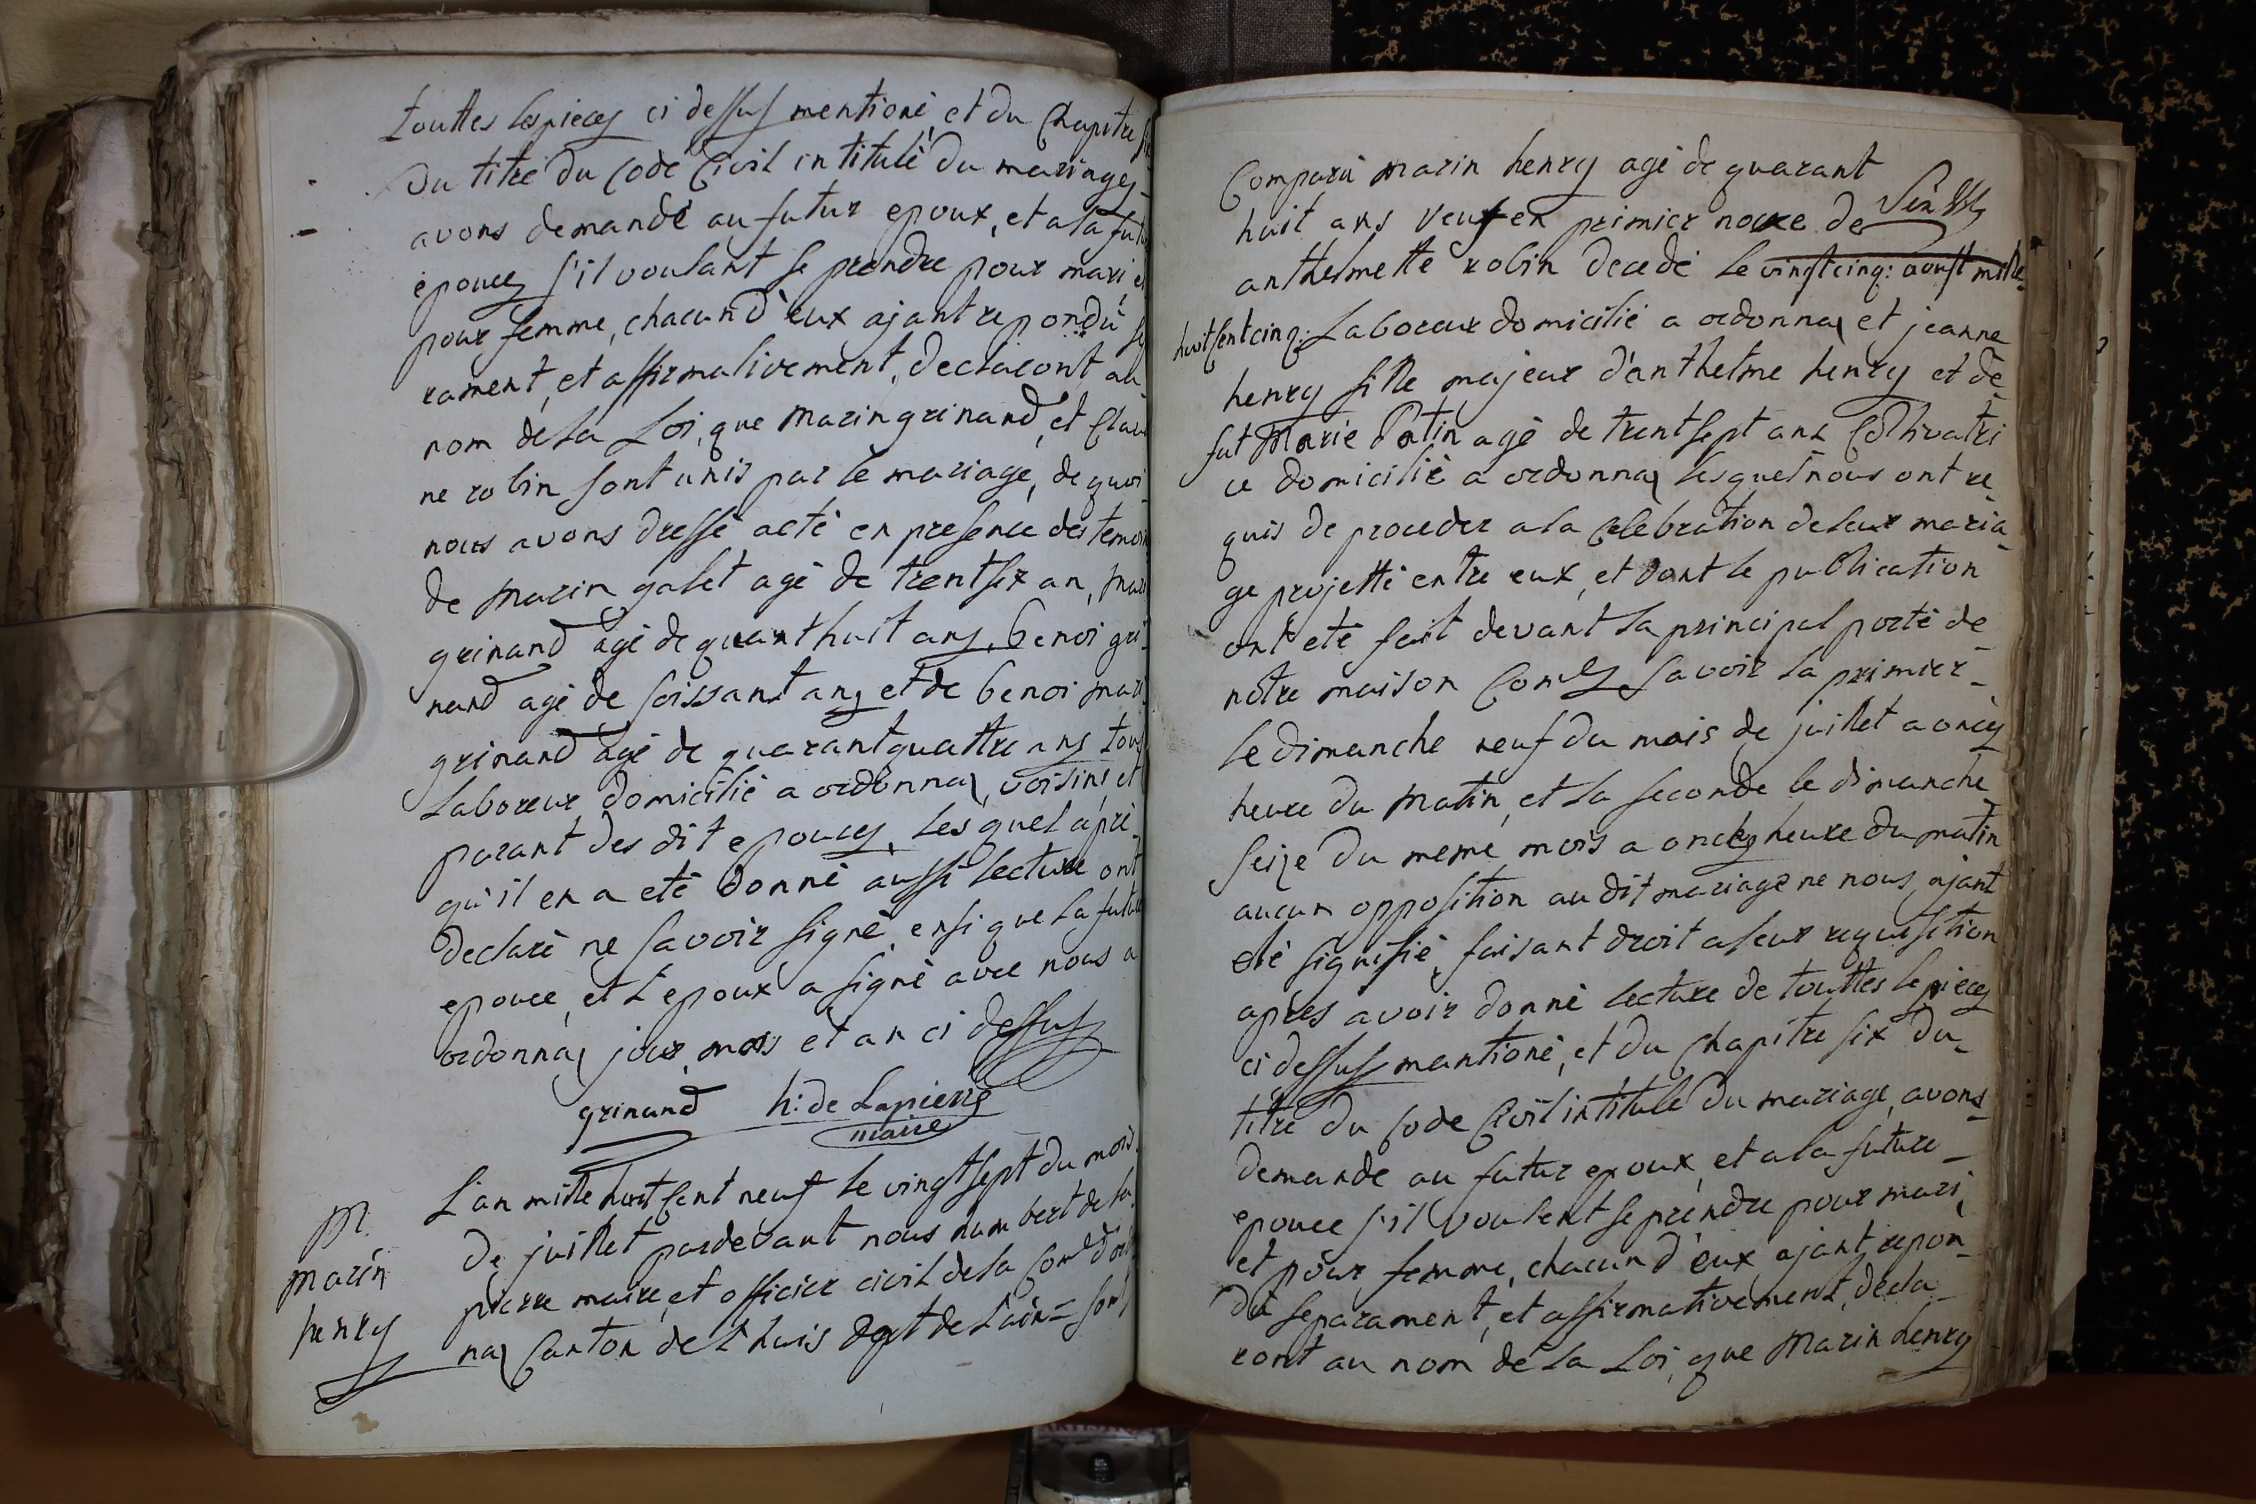 touttes les pieces ci dessus mentioné, et du Chapitre six
Du titre du Code Civil intitulé du mariages
avons demandé au futur epoux, et a la futu
epouces s'il voulant se prendre pour mari, et
pour femme, chacun d'eux ajant repondù se
rament, et affirmativement, declaront au
nom de la Loi, que Marin grinand, et Clau
ne robin sont unis par le mariage, de quoi
nous avons dressé acté en presence des temoin
de Marin galet agé de trentsix an, mari
grinand agé de quaranthuit ans, benoi gri
nand agé de soissant ans et de benoi mari
grinand agé de quarantquattre ans tous
Laboreur domicilié a ordonnaz, voisins et
parant des dit epouces, Lesquel aprè
qu'il en a eté donné aussi lecture ont
declaré ne savoir signé, ensi que la future
epouce, et L'epoux a signé avec nous a
ordonnaz jour, mois et an ci dessus
grinand h: de Lapierre
maire
M.
marin
henry
L'an mille huit sent neuf le vingtsept du mois
De juillet pardevant nous humbert de la
pierre maire, et officier civil de la Com.e d'ordon
naz Canton de L'huis dept de L'ain = sont
Comparù Marin henry agé de quarant
huit ans veuf en primier noxe de
anthelmette robin decedé le vingtcinq: aoust mille
huit sent cinq: Laboreur domicilié a ordonnaz et jeanne
henry fille majeur d'anthelme henry et de
fut Marie Patin agé de trentsept ans Coltivatri
ce domicilié a ordonnaz lesquel nous ont re
quis de proceder a la Celebration de leur maria
ge projetté entre eux, et dont le publication
ont eté fait devant la principal porté de
notre maison Com.e savoir la primier
le dimanche neuf du mois de juillet a onces
heure du matin, et la seconde le dimanche
seize du meme mois a onces heure du matin
aucun opposition au dit mariage ne nous ajant
eté signifié, faisant droit a leur requisition
apres avoir donné lecture de touttes le pieces
ci dessus mantioné, et du Chapitre six du
titre du Code Civil intitulé du mariage, avons
demandé au futur epoux, et a la future
epouce s'il voulent se prendre pour mari,
et pour femme, chacun d'eux ajant repon
du separament, et affirmativement, decla
ront au nom de la Loi, que Marin henry